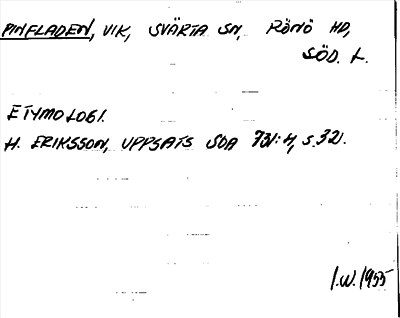 PINFLADEN, VIK, SVÄRTA SN, RÖNÖ HD,
SÖD. L.
ETYMOLOGI.
H. ERIKSSON, UPPSATS SOA 731:4, S. 32.
I.W. 1955